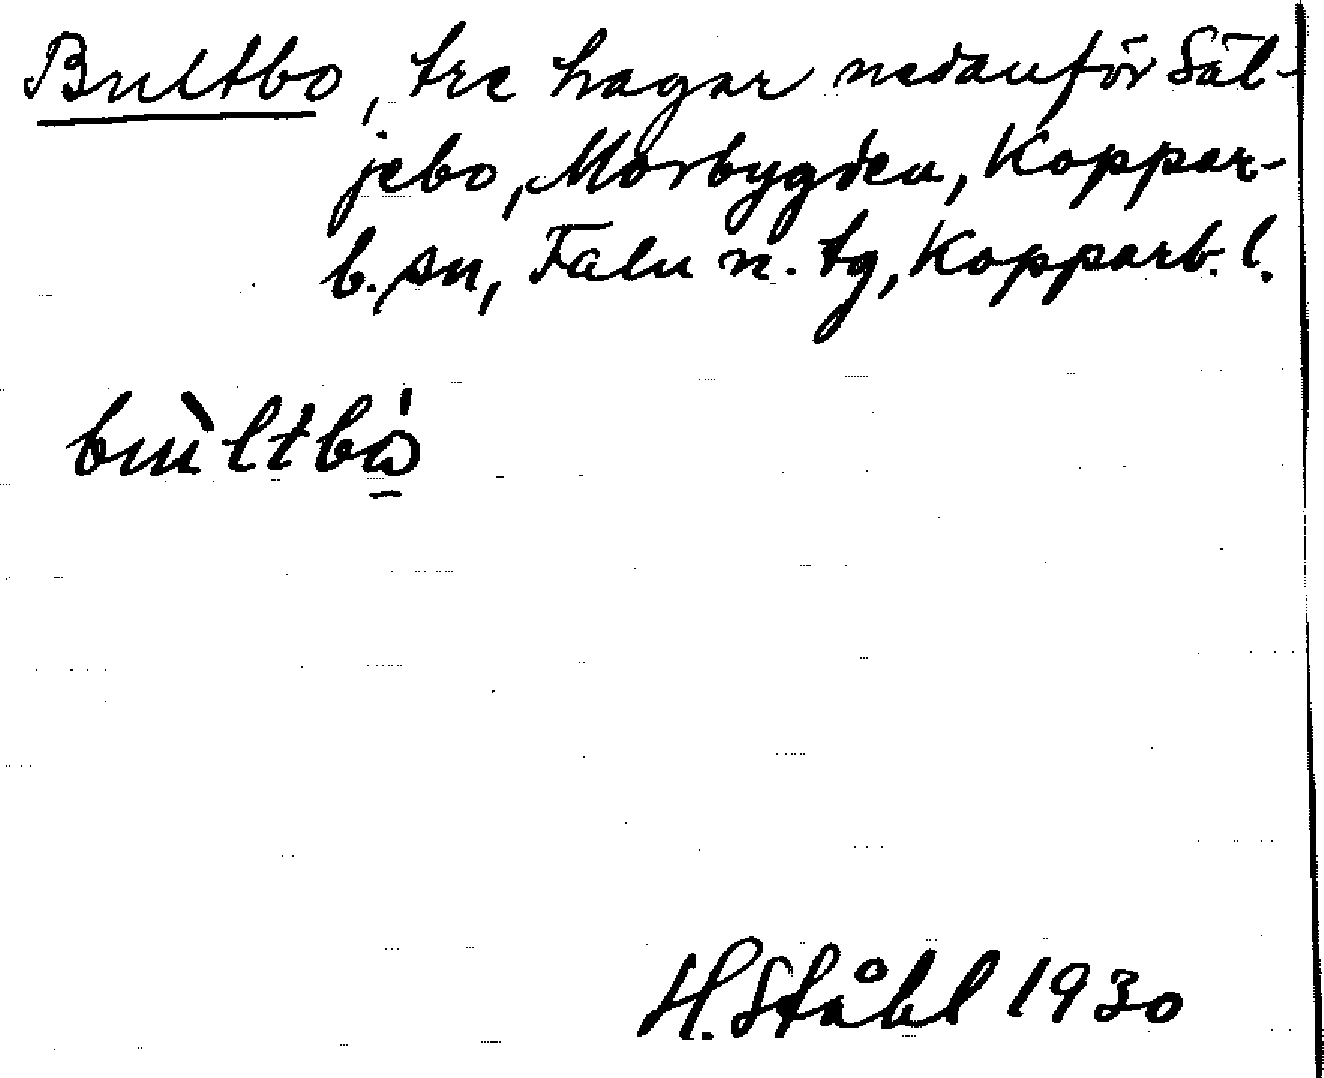 Bultbo, tre hagar nedanför Säl-
jebo, Morbygden, Koppar-
b. sn, Falu n. tg, Kopparb. l.
bu̇̀ltbó̲
H. Ståhl 1930